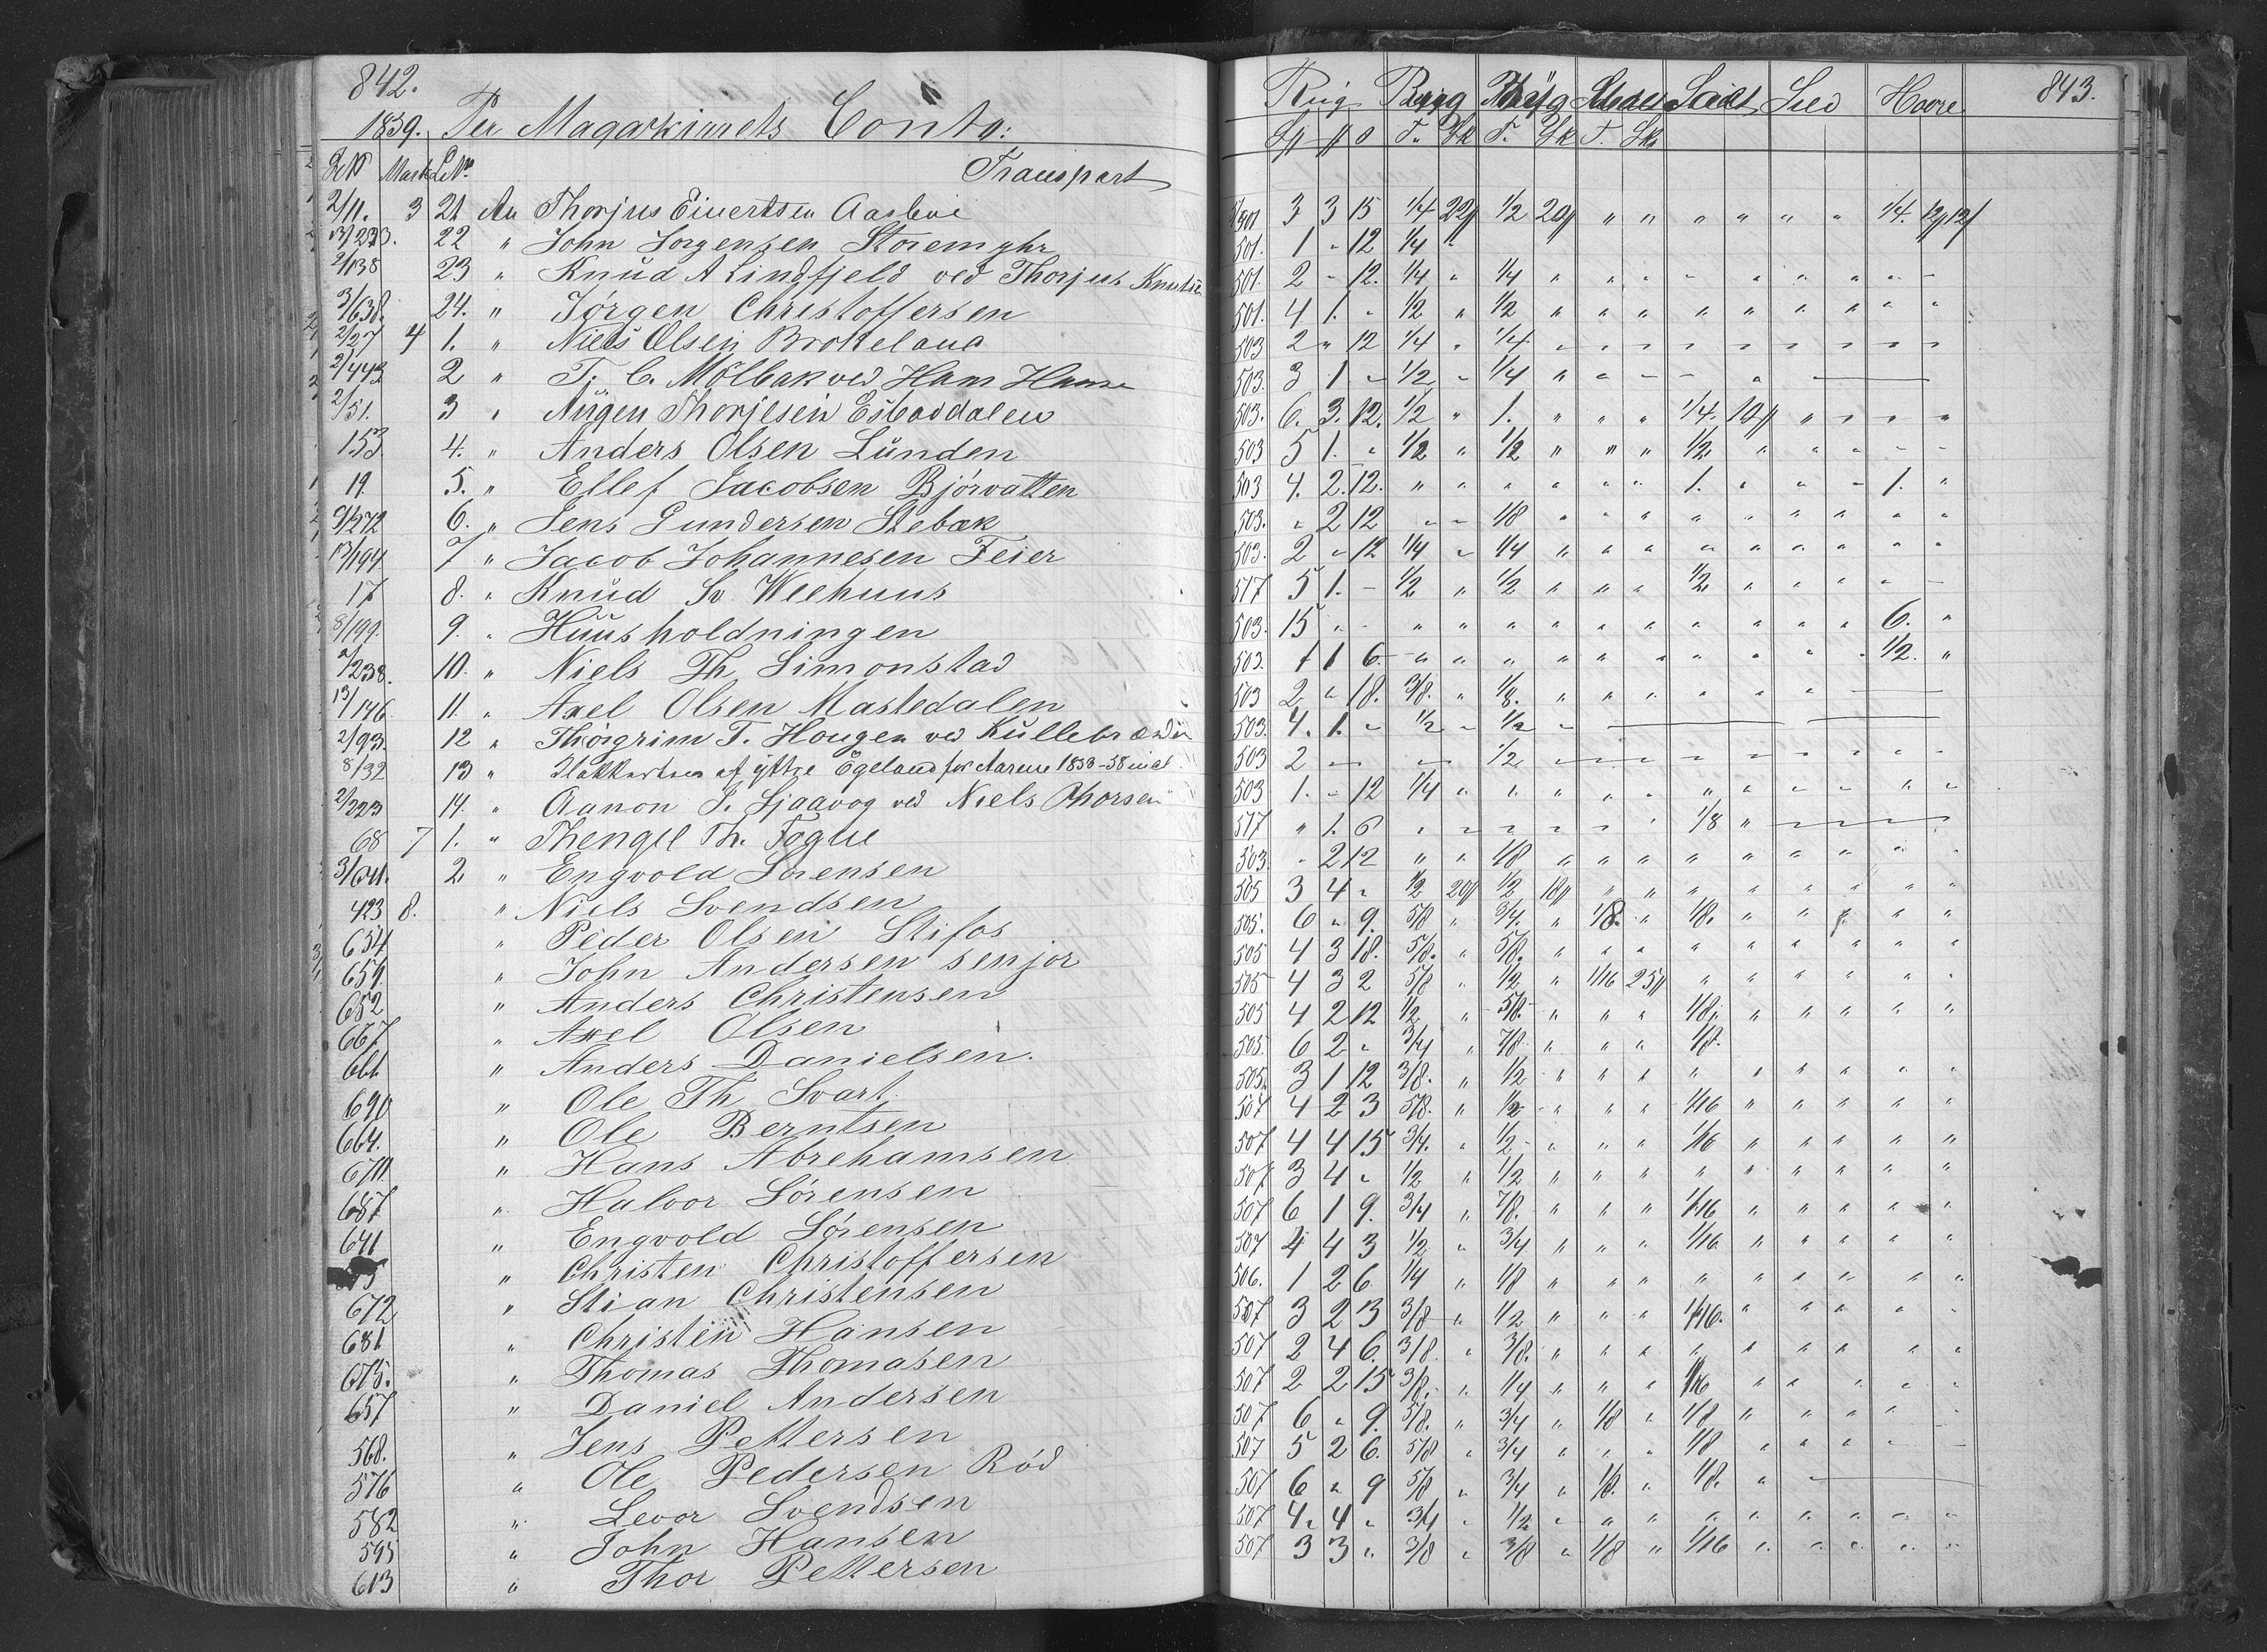 842.
1859. Per Magaskinets Conto:
Mark LNo.
Transport
2/11. 3 21 An Thorjus Einertsen Aasbøe
22 " John Jørgensen Storemyhr
2/138 23 " Knud A Lindtjeld ved Thorjus Knutsen
3/638. 24. " Jørgen Christoffersen
2/27 4 1. " Niels Olsen Brokeland
2/443 2 " T. C. Mölbak ved Hans Hanse
2/51. 3 " Aügen Thorjesen Esbaddalen
153 4. " Anders Olsen Lünden
19. 5. " Ellef Jacobsen Bjørvatten
9/272 6. " Jens Gundersen Stebæk
13/194 7 " Jacob Johannesen Feier
17 8. " Knud Sv. Weehuus
8/199. 9. " Huusholdningen
2/238. 10. " Niels Th Simonstad
13/146. 11. " Axel Olsen Mastedalen
2/93. 12 " Thorgrim T. Hougen ved Kullebrænder
8/132 13 " yttre Egeland for Aarene 1853-58
2/223 14. " Aanon J. Sjaavog ved Niels Thorsen
68 7 1. " Thengel Th. Fogne
2. " Engvold Sørensen
423 8. " Niels Svendsen
654 " Peder Olsen Stifos
659. " John Andersen senjor
652 " Anders Christensen
667 " Axel Olsen
661. " Anders Danielsen.
690 " Ole Th Svart
664. " Ole Berntsen
670. " Hans Abrehamsen
687 " Halvor Sörensen
641 " Engvold Sörensen
" Christen Christoffersen
672 " Stian Christensen
681 " Christen Hansen
675. " Thomas Thomasen
657 " Daniel Andersen
568. " Jens Pettersen
576 " Ole Pedersen Röd
582 " Levor Svendsen
595 " John Hansen
613 " Thor Pettersen
Rug Bygg Sædt Sild Havre 843.
T. Sk T. Sk T. Sk.
501 3 3 15 1/4 22 1/2 20 " " " " " " 1/4.
501. 1 " 12 1/4 "
501. 2 " 12. 1/4 " 1/4 " " " " " " " " "
501. 4 1. " 1/2 " 1/2 " " " " " " " " "
503 2 " 12 1/4 " 1/4 " " " " " " " " "
503. 3 1. " 1/2 " 1/4 " " " " "
503. 6. 3. 12. 1/2 " 1. " " " 1/4. 10 " " " "
503 5 1. " 1/2 " 1/2 " " " 1/2. " " " " "
503 4. 2. 12. " " " " " " 1. " " " 1. "
503. " 2 12 " " 1/8 " " " " " " " " "
503. 2 " 12 1/4 " 1/4 " " " " " " " " "
517 5 1. " 1/2 " 1/2 " " " 1/2. " " " " "
503. 15 " " " " " " " " " " " " 6. "
503. 1 1 6. " " " " " " " " " " 1/2. "
503 2 " 18. 3/8. " 1/8. " " " " " "
503. 4. 1. " 1/2 " 1/2 "
503 2 " " 1/2 " " " " " " " " "
503 1. " 12 1/4 " " " " " " " " " " "
517 " 1. 6 " " " " " " 1/8 "
503. " 2 12 " " 1/8 " " " " " " " "
505 3 4 " 1/2 20 1/2 18 " " " " " " " "
505. 6 " 9. 5/8 " 3/4. " 1/8. " 1/8. " " " "
505 4 3 18. 5/8. " 5/8. " " " " " " " " "
505 4 3 2 5/8 " 1/2 " 1/16 25 " " " " " "
505 4 2 12 1/2 " 5/8. " " " 1/8. " " " " "
505. 6 2 " 3/4 " 7/8. " " " 1/8.
505. 3 1 12 3/8. " 1/2 " " " " " " " " "
507 4 2 3 5/8. " 1/2 " " " 1/16 " " " " "
507 4 4 15 3/4. " 1/2 " " " 1/16 " " " " "
507 3 4 " 1/2 " 1/2 " " " " " " " " "
507 6 1 9. 3/4 " 7/8. " " " 1/16 " " " " "
507 4 4 3 1/2 " 3/4 " " " 1/16 " " " " "
506. 1 2 6 1/4 " 1/8 " " " " " " " " "
507 3 2 3 3/8 " 1/2 " " " 1/16. " " " " "
507 2 4 6. 3/8. " 3/8. " " " " " " " " "
507 2 2 15 3/8. " 1/4 " " " 1/16 " " " " "
507 6 " 9. 5/8. " 3/4 " 1/8 " 1/8 " " " " "
507 5 2 6. 5/8 " 3/4 " " " 1/8 " " " " "
507 6 " 9 5/8 " 3/4 " 1/8. " 1/8. "
507 4 4 " 3/4 " 1/2. " " " " " " " " "
507 3 3 " 3/8 " 3/8 " 1/8 " 1/16 " " " " "